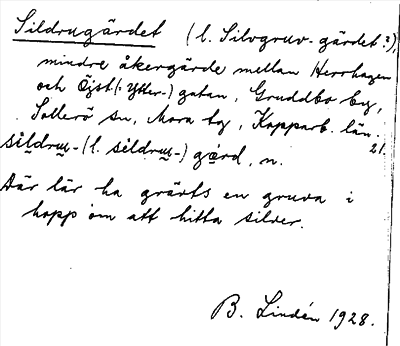 Sildrugärdet (l. Silvgruv-gärdet?),
mindre åkergärde mellan Herrhagen
och Öjst (: Ytter-) gatan, Gruddbo by,
Sollerö sn, Mora tg, Kopparb. län.
21.
sildru̲- (l. sildru̲-) gərd, n.
Där lär ha grävts en gruva i
hopp om att hitta silver.
B. Lindén 1928.